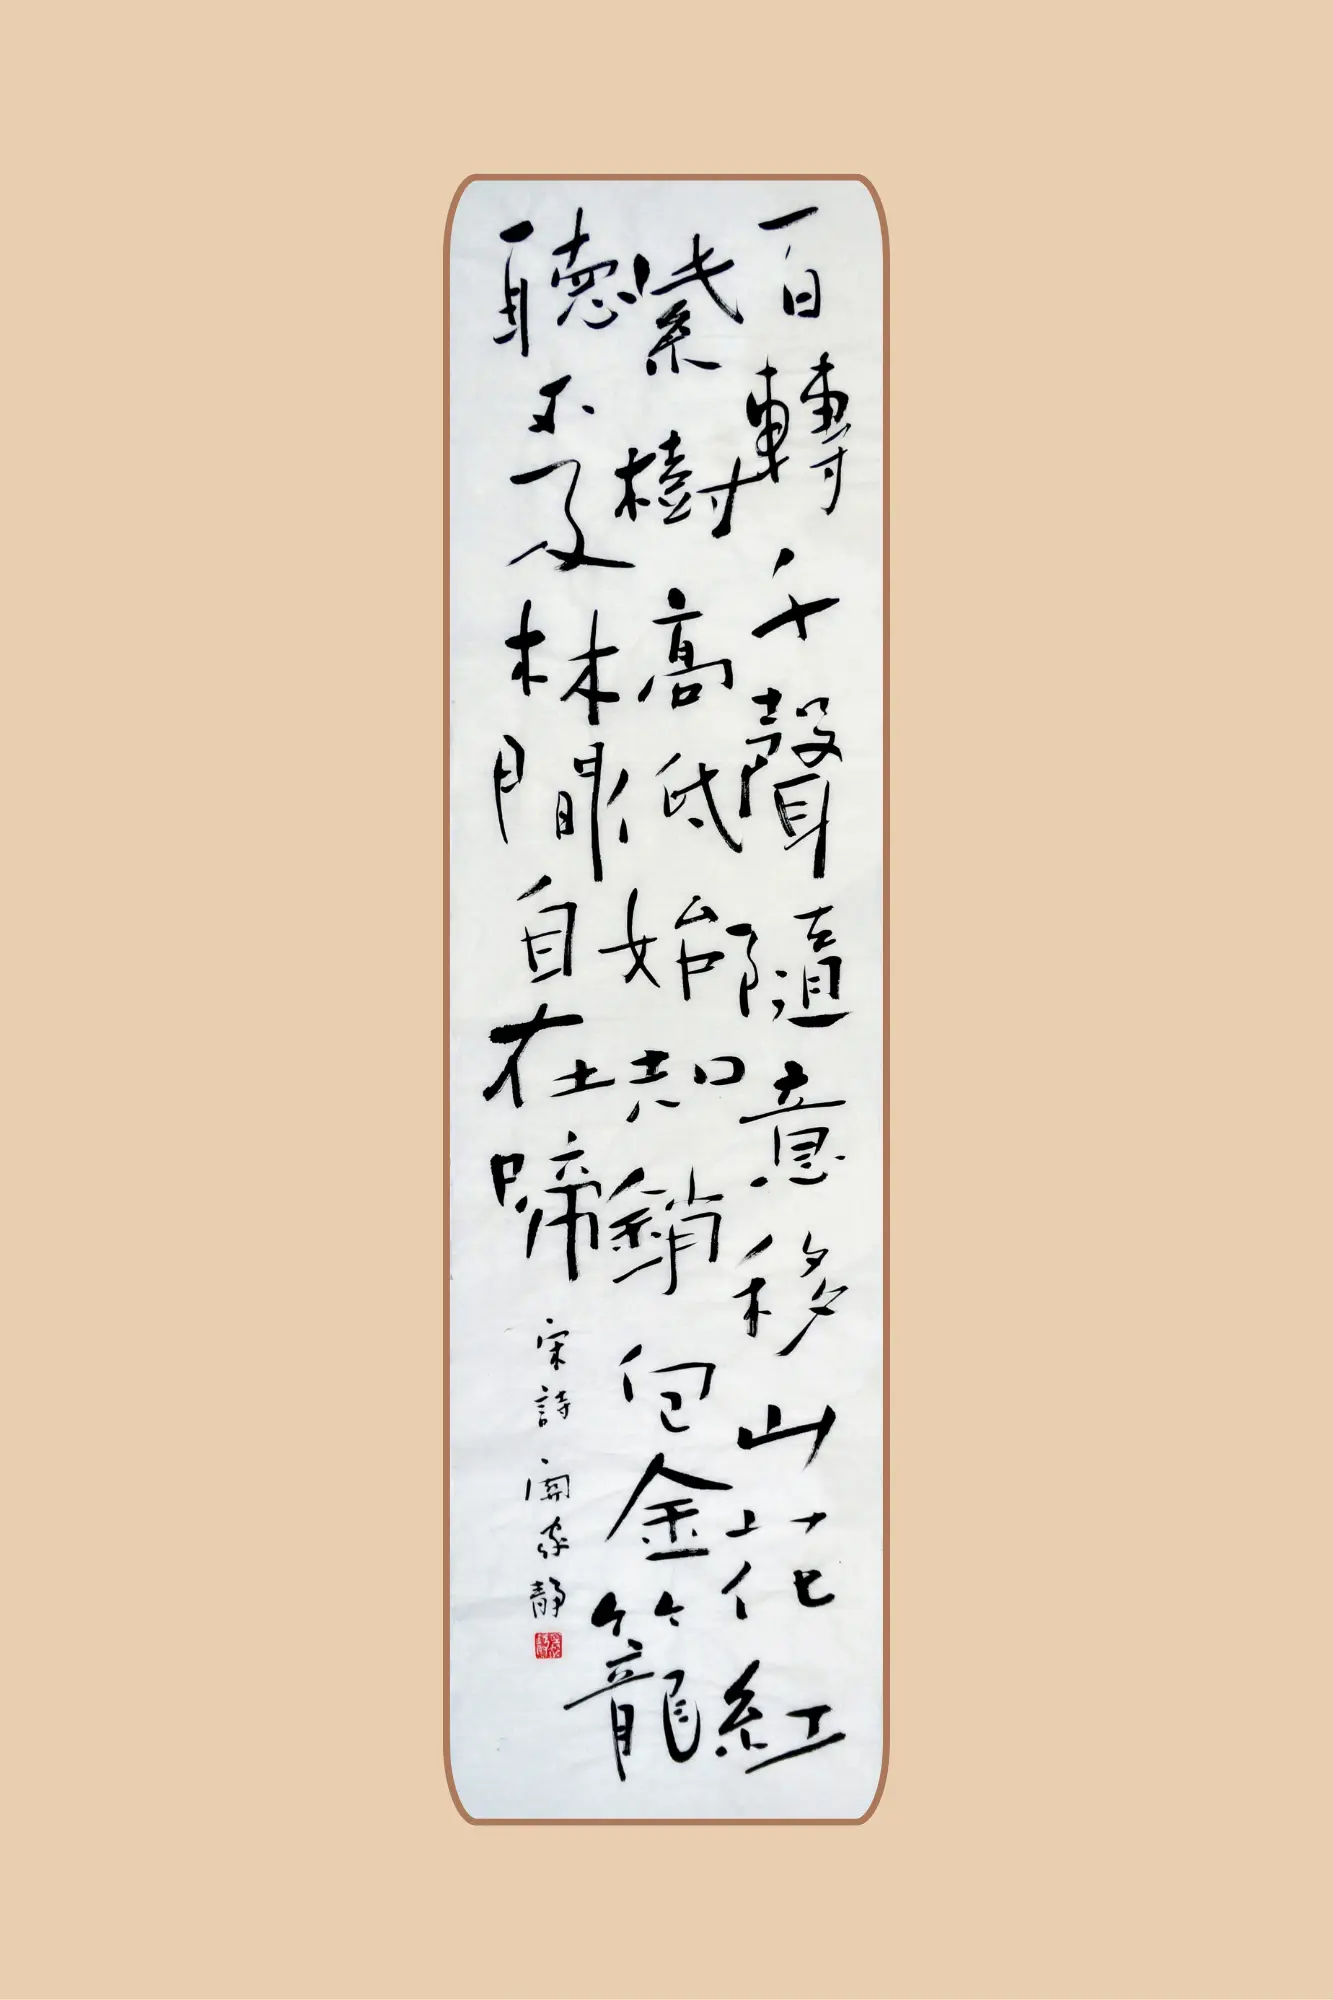 百轉千聲隨意移山花紅
紫樹高低始知鎖向金籠
聽不及林間自在啼
宋詩 家靜